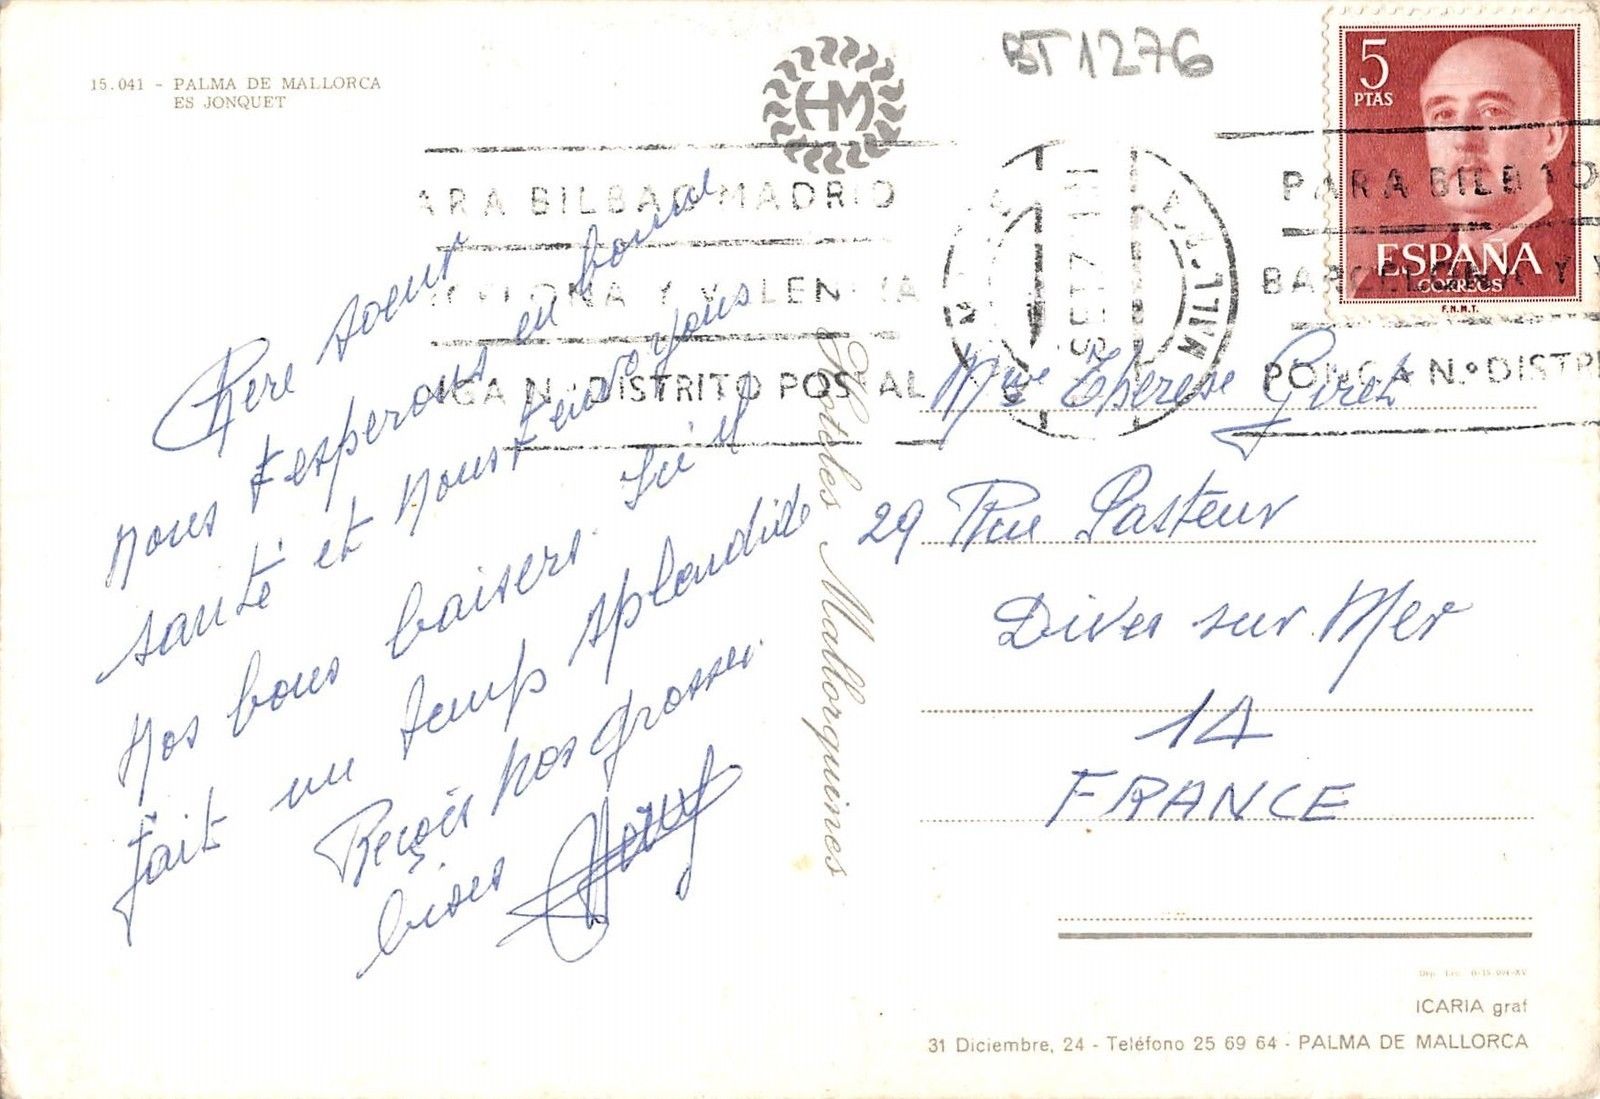 15.041 - PALMA DE MALLORCA
ES JONQUET
HM
BT1276
5
PTAS
ESPAÑA
CORREOS
F.N.M.T.
ARA BILBAO MADRID
BARCELONA Y VALENCIA
PONGA N.º DISTRITO POSTAL
PARA BILBAO
BARCELONA Y V
PONGA N.º DISTRI
Chère soeur
nous t'esperons en bonne
santé et nous t'envoyons
Nos bons baisers. Ici il
fait un temp splendide
Reçois nos grosses
bises
Hoteles Mallorquines
Mme Thérèse
29 Rue Pasteur
Dives sur Mer
14
FRANCE
ICARIA graf
31 Diciembre, 24 - Teléfono 25 69 64 - PALMA DE MALLORCA